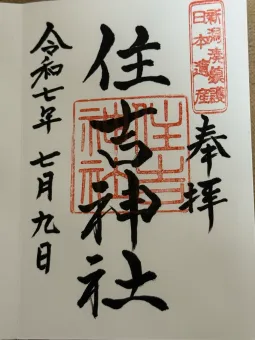 新潟湊鎮護
日本遺産
奉拝
住吉神社
住吉神社
令和七年 七月九日